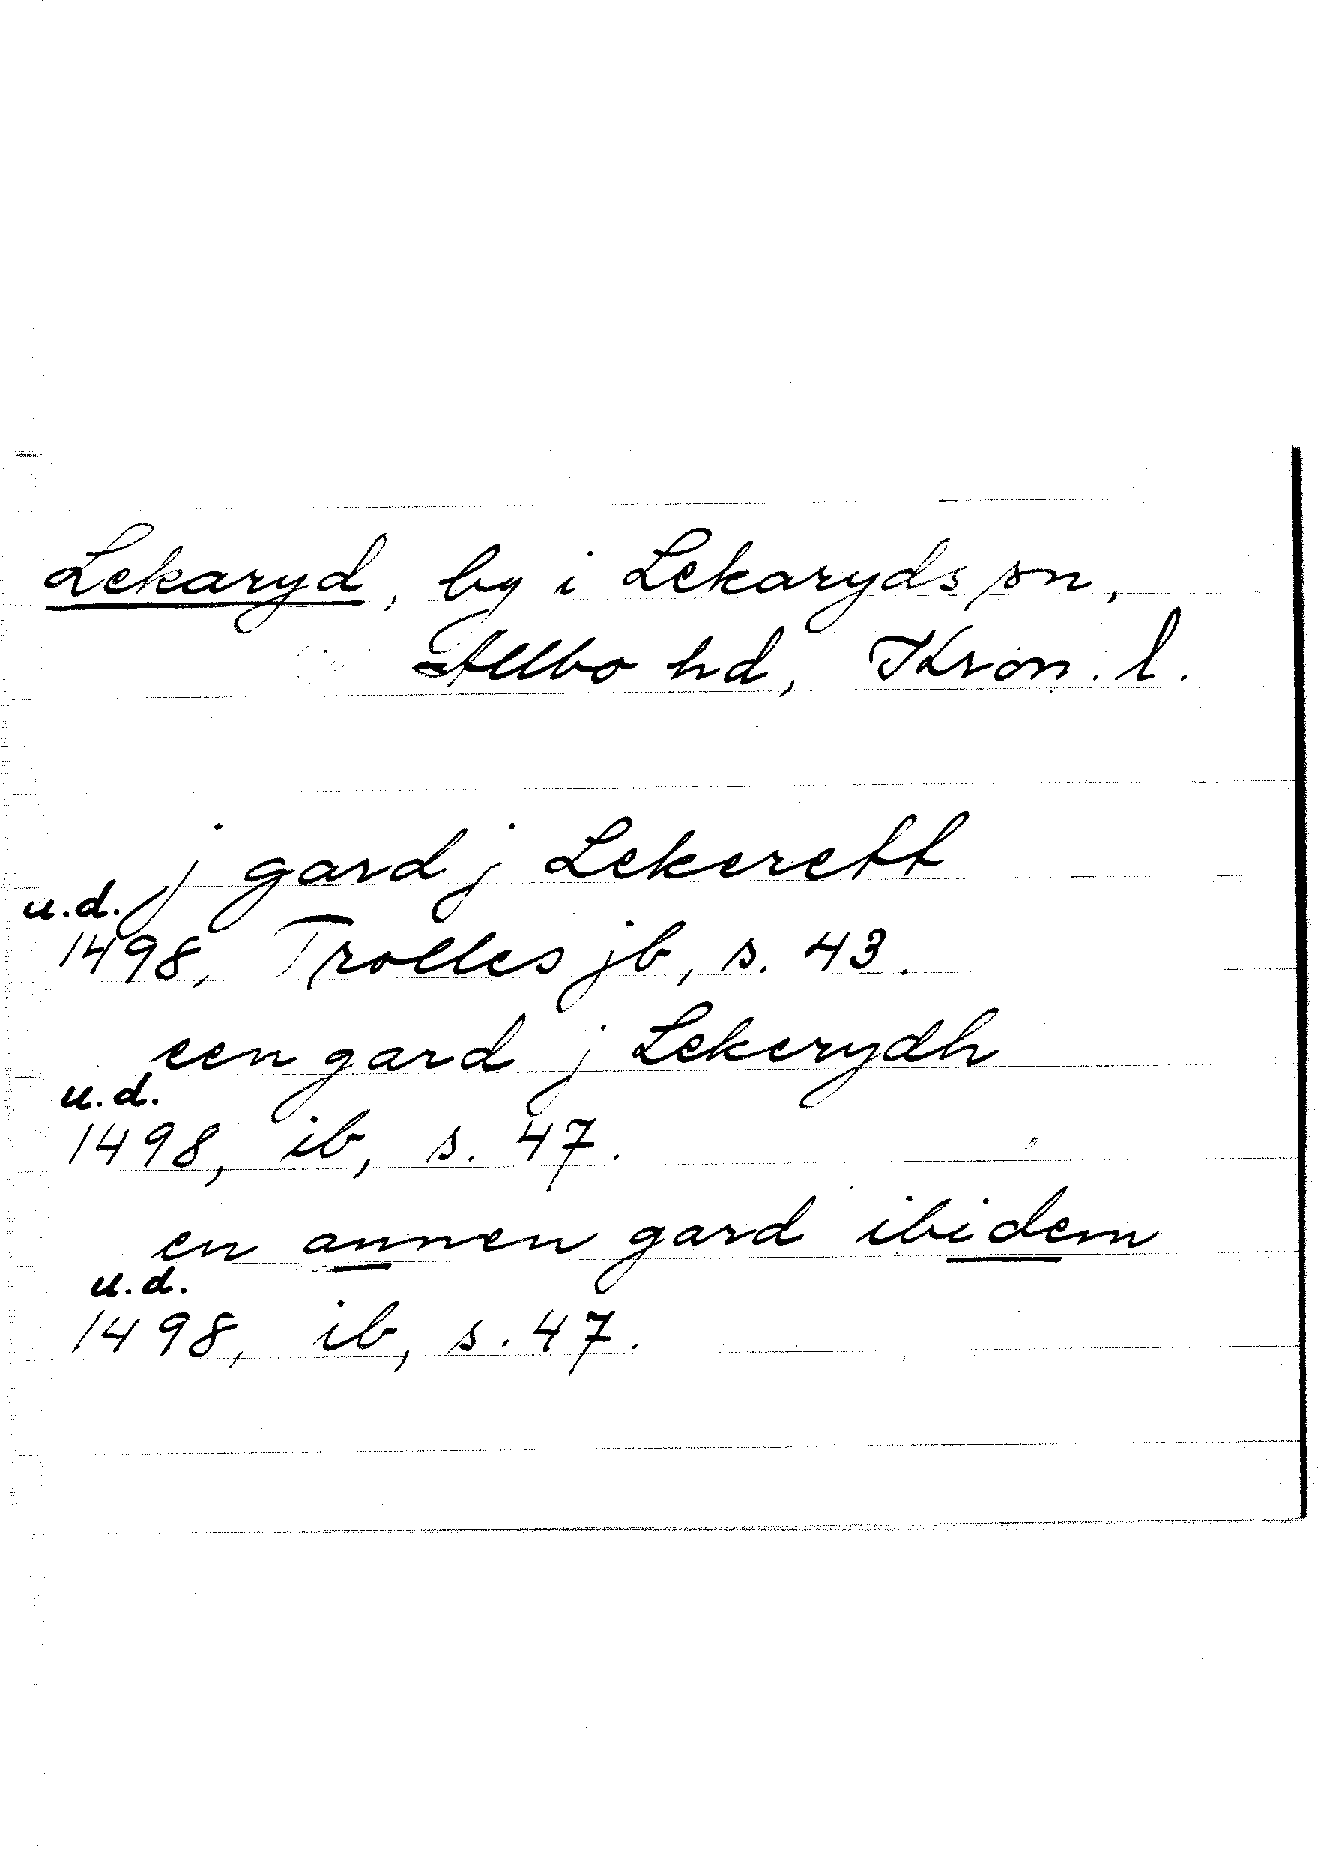 Lekaryd, by i Lekaryds sn,
Allbo hd, Kron. l.
j gard j Lekerett
u.d.
1498, Trolles jb, s. 43.
een gard j Lekerydh
u.d.
1498, ib, s. 47.
en annen gard ibidem
u.d.
1498, ib, s. 47.